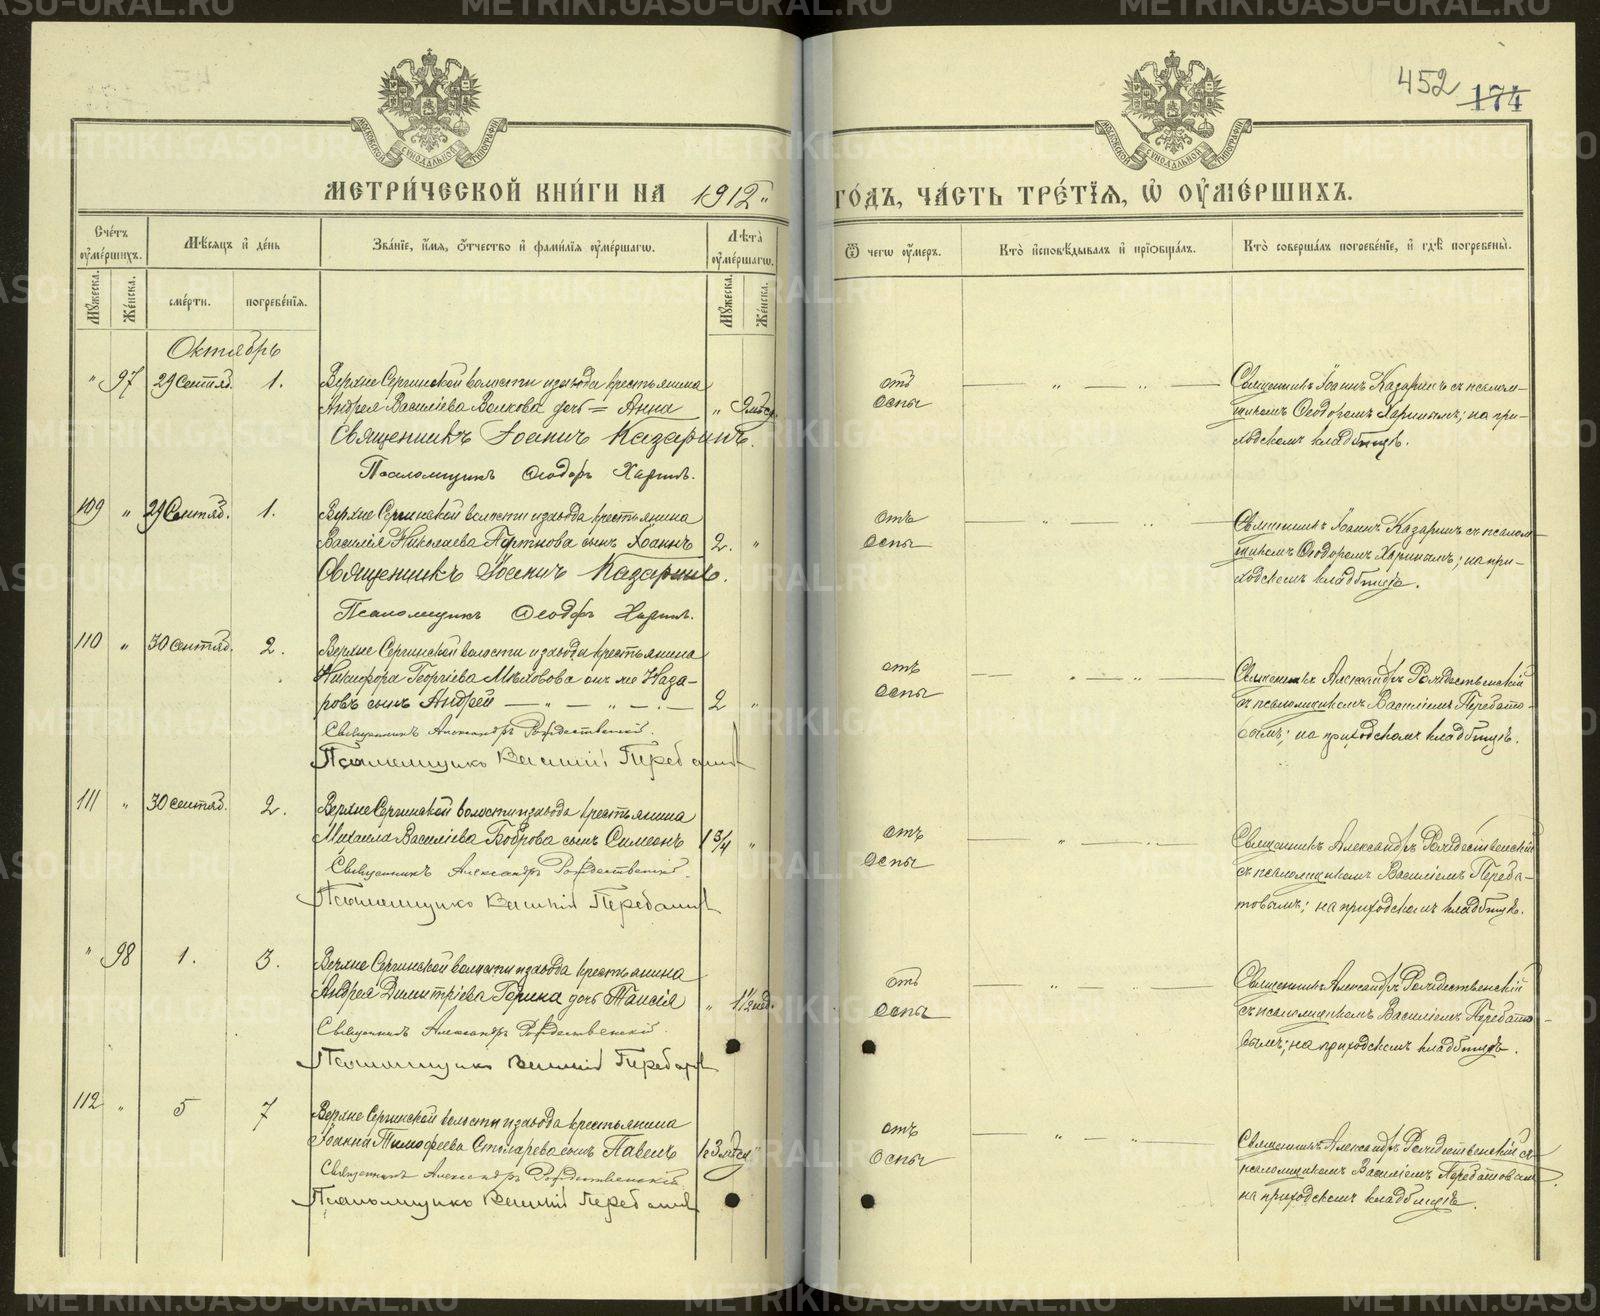 452 174
МЕТРИ́ЧЕСКОЙ КНИ́ГИ НА 1912" ГО́ДЪ, ЧА́СТЬ ТРЕ́ТЇѦ, Ѡ҆ ОУ҆МЕ́РШИХЪ.
Сче́тъ оу҆ме́ршихъ.
Мѣ́сяцъ и҆ де́нь
Зва́нїе, и҆́мя, ѻ҆́тчество и҆ фами́лїя оу҆ме́ршагѡ.
Лѣ̀та оу҆ме́ршагѡ.
Ѿ чегѡ̀ оу҆́меръ.
Кто̀ и҆сповѣ́дывалъ и҆ прїѻбща́лъ.
Кто̀ соверша́лъ погребе́нїе, и҆ гдѣ̀ погребены̀.
Мꙋ́жеска. Же́нска.
сме́рти. погребе́нїя.
Мꙋ́жеска. Же́нска.
Октябрь
" 97 29 Сентяб. 1.
Верхне Сергинской волости изавода крестьянина
Андрея Василіева Волкова дочь = Анна " 9 мѣс.
Священникъ Іоаннъ Казаринъ.
Псаломщикъ Ѳеодоръ Харинъ.
отъ
оспы
Священникъ Іоаннъ Казаринъ съ псалом-
щикомъ Ѳеодоромъ Харинымъ; на при-
ходскомъ кладбищѣ.
109 " 29 Сентяб. 1.
Верхне Сергинской волости изавода крестьянина
Василія Николаева Портнова сынъ Іоаннъ 2. "
Священникъ Іоаннъ Казаринъ.
Псаломщикъ Ѳеодоръ Харинъ.
отъ
оспы
Священникъ Іоаннъ Казаринъ съ псалом-
щикомъ Ѳеодоромъ Харинымъ; на при-
ходскомъ кладбищѣ.
110 " 30 сентяб. 2.
Верхне Сергинской волости изавода крестьянина
Никифора Георгіева онъ же Наза-
ровъ сынъ Андрей — " — " — 2 "
Священникъ Александръ Рождественскій.
Псаломщикъ Василій
отъ
оспы
Священникъ Александръ Рождественскій
съ псаломщикомъ Василіемъ Перебато-
вымъ; на приходскомъ кладбищѣ.
111 " 30 сентяб. 2.
Верхне Сергинской волости изавода крестьянина
Михаила Василіева Боброва сынъ Симеонъ 1 3/4 "
Священникъ Александръ Рождественскій.
Псаломщикъ Василій
отъ
оспы
Священникъ Александръ Рождественскій
съ псаломщикомъ Василіемъ Переба-
товымъ; на приходскомъ кладбищѣ.
" 98 1. 3.
Верхне Сергинской волости изавода крестьянина
Андрея Димитріева дочь Таисія " 1 1/2 нед.
Священникъ Александръ Рождественскій.
Псаломщикъ Василій
отъ
оспы
Священникъ Александръ Рождественскій
съ псаломщикомъ Василіемъ Перебато-
вымъ; на приходскомъ кладбищѣ.
112 " 5 7
Верхне Сергинской волости изавода крестьянина
Іоанна Тимофеева Столарева сынъ Павелъ
Священникъ Александръ Рождественскій
Псаломщикъ Василій
отъ
оспы
Священникъ Александръ Рождественскій съ
псаломщикомъ Василіемъ Перебатовымъ
на приходскомъ кладбищѣ.
METRIKI.GASO-URAL.RU